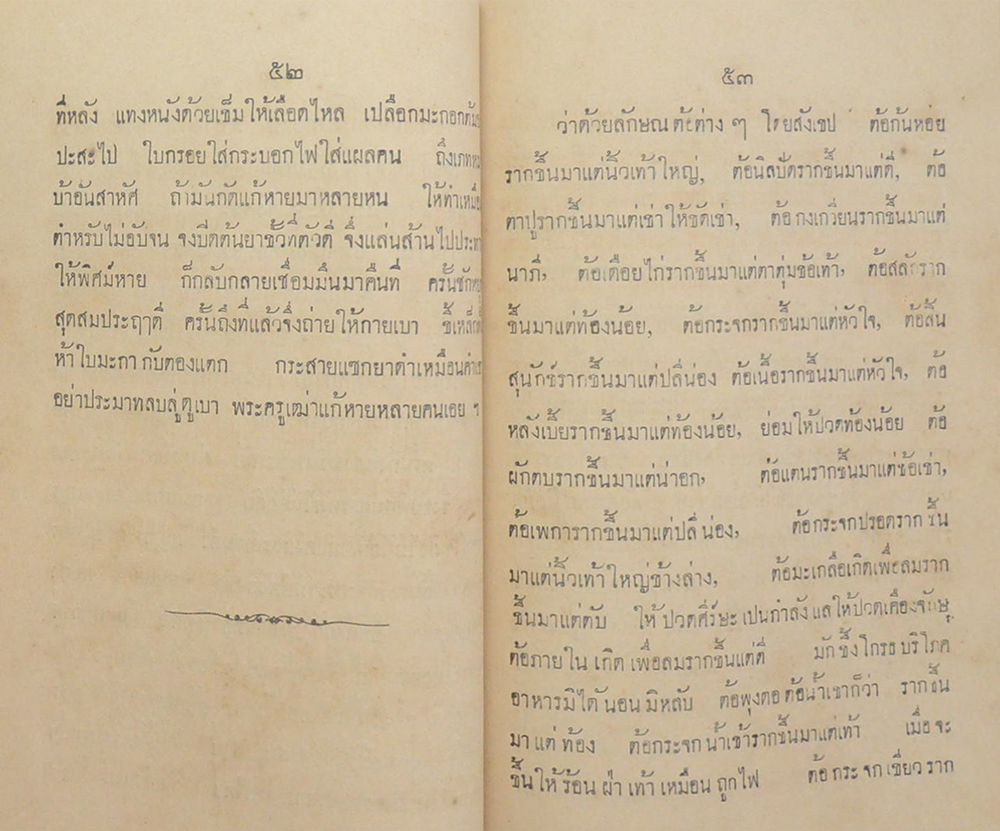 ๕๒
ที่หลัง แทงหนังด้วยเข็มให้เลือดไหล เปลือกมะกอกต้ม
ปะสะไป ใบกรอยใส่กระบอกไฟใส่แผลคน ถึงเภท
บ้าอันสาหัศ ถ้ามันกัดแก้หายมาหลายหน ให้ทำเหมือ
ตำหรับไม่อับจน จงบีดต้นยาขั้วที่ตัวดี จึ่งแล่นส้านไปประ
ให้พิศม์หาย ก็กลับกลายเชื่อมมึนมาคืนที่ ครั้นชัก
สุดสมประฤๅดี ครั้นถึงที่แล้วจึ่งถ่ายให้กายเบา ขี้เหล็ก
ห้าใบมะกา กับตองแตก กระสายแซกยาดำเหมือน
อย่าประมาทลบลู่ดูเบา พระครูเฒ่าแก้หายหลายคนเอย ฯ
๕๓
ว่าด้วยลักษณต้อต่าง ๆ โดยสังเขป ต้อก้นหอย
รากขึ้นมาแต่นิ้วเท้าใหญ่, ต้อนิลบัดรากขึ้นมาแต่ดี, ต้อ
ตาปูรากขึ้นมาแต่เข่าให้ขัดเข่า, ต้อกงเกวียนรากขึ้นมาแต่
นาภี, ต้อเดือยไก่รากขึ้นมาแต่ตาตุ่มข้อเท้า, ต้อสลักราก
ขึ้นมาแต่ท้องน้อย, ต้อกระจกรากขึ้นมาแต่หัวใจ, ต้อลิ้น
สุนักข์รากขึ้นมาแต่ปลีน่อง ต้อเนื้อรากขึ้นมาแต่หัวใจ, ต้อ
หลังเบี้ยรากขึ้นมาแต่ท้องน้อย, ย่อมให้ปวดท้องน้อย ต้อ
ผักตบรากขึ้นมาแต่น่าอก, ต้อแตนรากขึ้นมาแต่ข้อเข่า,
ต้อเพการากขึ้นมาแต่ปลีน่อง, ต้อกระจกปรอดราก ขึ้น
มาแต่นิ้วเท้าใหญ่ข้างล่าง, ต้อมะเกลือเกิดเพื่อลมราก
ขึ้นมาแต่ตับ ให้ปวดศีร์ษะเปนกำลัง แลให้ปวดเคืองจักษุ
ต้อภายใน เกิด เพื่อลมรากขึ้นแต่ดี มักขึ้งโกรธ บริโภค
อาหารมิได้ นอน มิหลับ ต้อพุงดอ ต้อน้ำเขาก็ว่า รากขึ้น
มา แต่ ท้อง ต้อกระจก น้ำเข้ารากขึ้นมาแต่เท้า เมื่อ จะ
ขึ้นให้ ร้อน ฝ่า เท้า เหมือน ถูกไฟ ต้อ กระ จก เขียว ราก